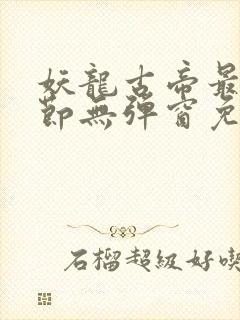 妖龍古帝最
節無彈窗免
石榴超級好喫